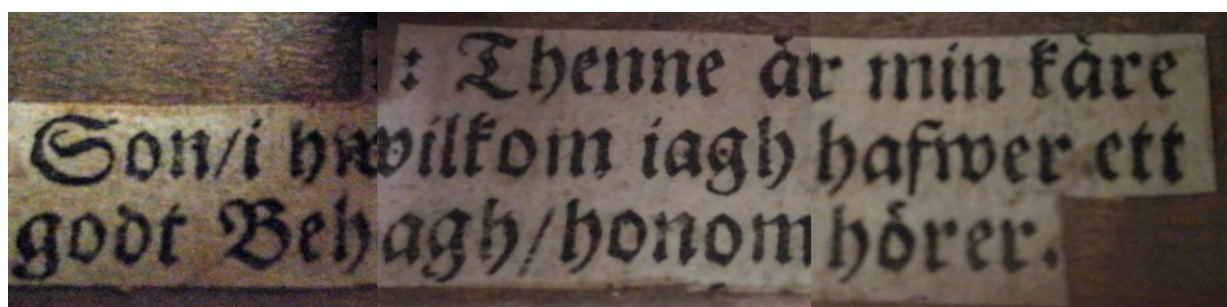 : Thenne är min käre
Son/i hwilkom iagh hafwer ett
godt Behagh/honom hörer.